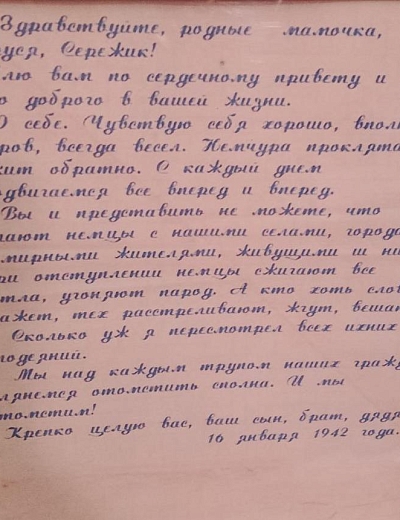 Здравствуйте, родные мамочка,
уся, Сережик!
лю вам по сердечному привету и
о доброго в вашей жизни.
О себе. Чувствую себя хорошо, впол
ров, всегда весел. Немчура проклята
жит обратно. С каждый днем
одвигаемся все вперед и вперед.
Вы и представить не можете, что
ают немцы с нашими селами, города
мирными жителями, живущими ш ни
ри отступлении немцы сжигают все
тла, угоняют парод. А кто хоть слог
ажет, тех расстреливают, жгут, вешан
Сколько уж я пересмотрел всех ихних
одеяний.
Мы над каждым трупом наших гражд
лянемся отомстить сполна. И мы
томстим!
Крепко целую вас, ваш сын, брат, дядя
16 января 1942 года.